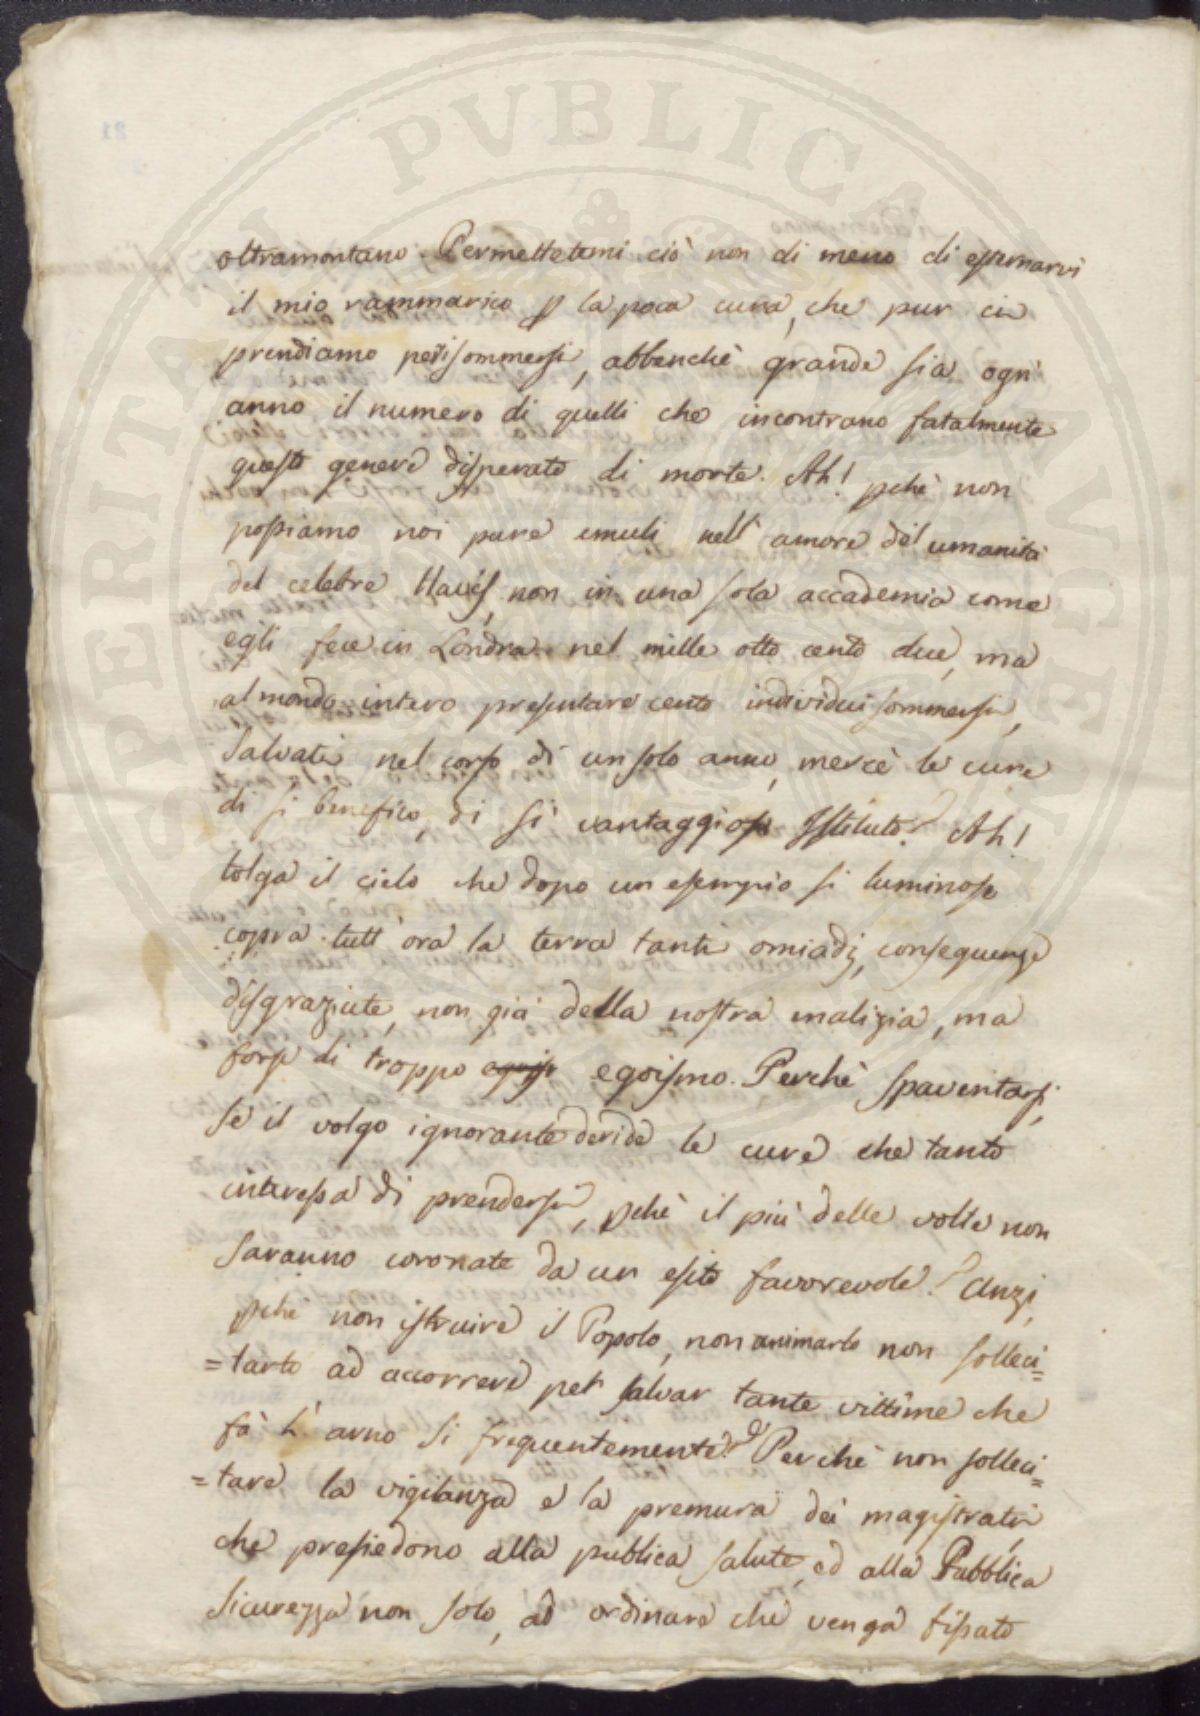 PROSPERITATI PVBLICAE AVGENDAE
oltramontano. Permettetemi ciò non di meno di esternarvi
il mio rammarico p la poca cura, che pur ci
prendiamo pei sommersi, abbenchè grande sia ogn'
anno il numero di quelli che incontrano fatalmente
questo genere disperato di morte. Ah! pchè non
possiamo noi pure emuli nell' amore del' umanità
del celebre Hawes, non in una sola accademia come
egli fece in Londra nel mille otto cento due, ma
al mondo intero presentare cento individui sommersi,
salvati nel corso di un solo anno, mercè le cure
di si benefico, di si vantaggioso Istituto? Ah!
tolga il cielo che dopo un esempio si luminoso
copra tutt' ora la terra tanti omiadi, conseguenze
disgraziate, non già della nostra malizia, ma
forse di troppo egois egoismo. Perchè spaventarsi,
se il volgo ignorante deride le cure che tanto
interessa di prendersi, pchè il più delle volte non
saranno coronate da un esito favorevole? Anzi,
pchè non istruire il Popolo, non animarlo non solleci=
=tarlo ad accorrere per salvar tante vittime che
fà L' arno si frequentemente? Perchè non solleci=
=tare la vigilanza e la premura dei magistrati,
che presiedono alla publica salute, ed alla Pubblica
sicurezza non solo, ad ordinare che venga fissato